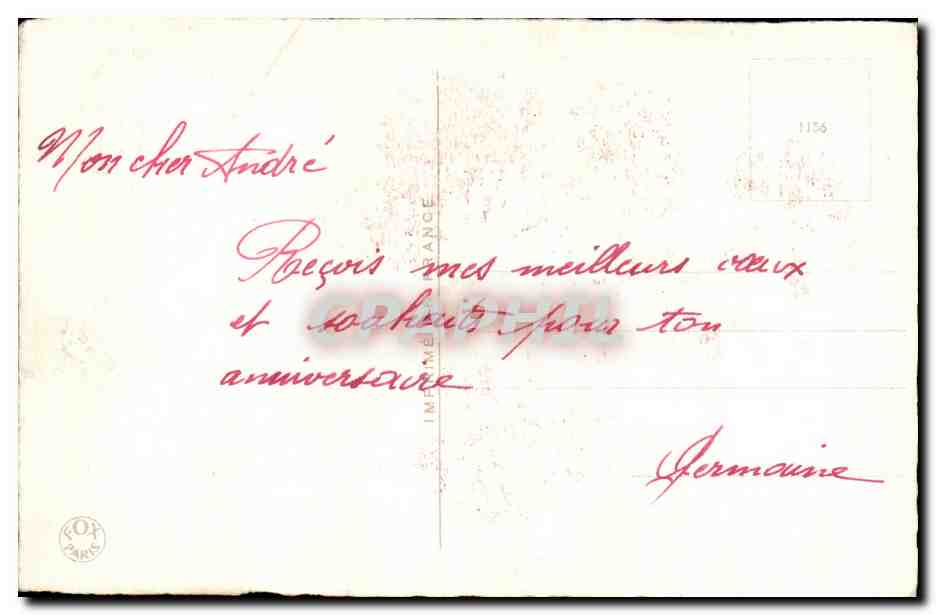 1136
Mon cher André
Reçois mes meilleurs vœux
et souhaits pour ton
anniversaire
Germaine
IMPRIMÉ FRANCE
CPAPHIL
FOX
PARIS